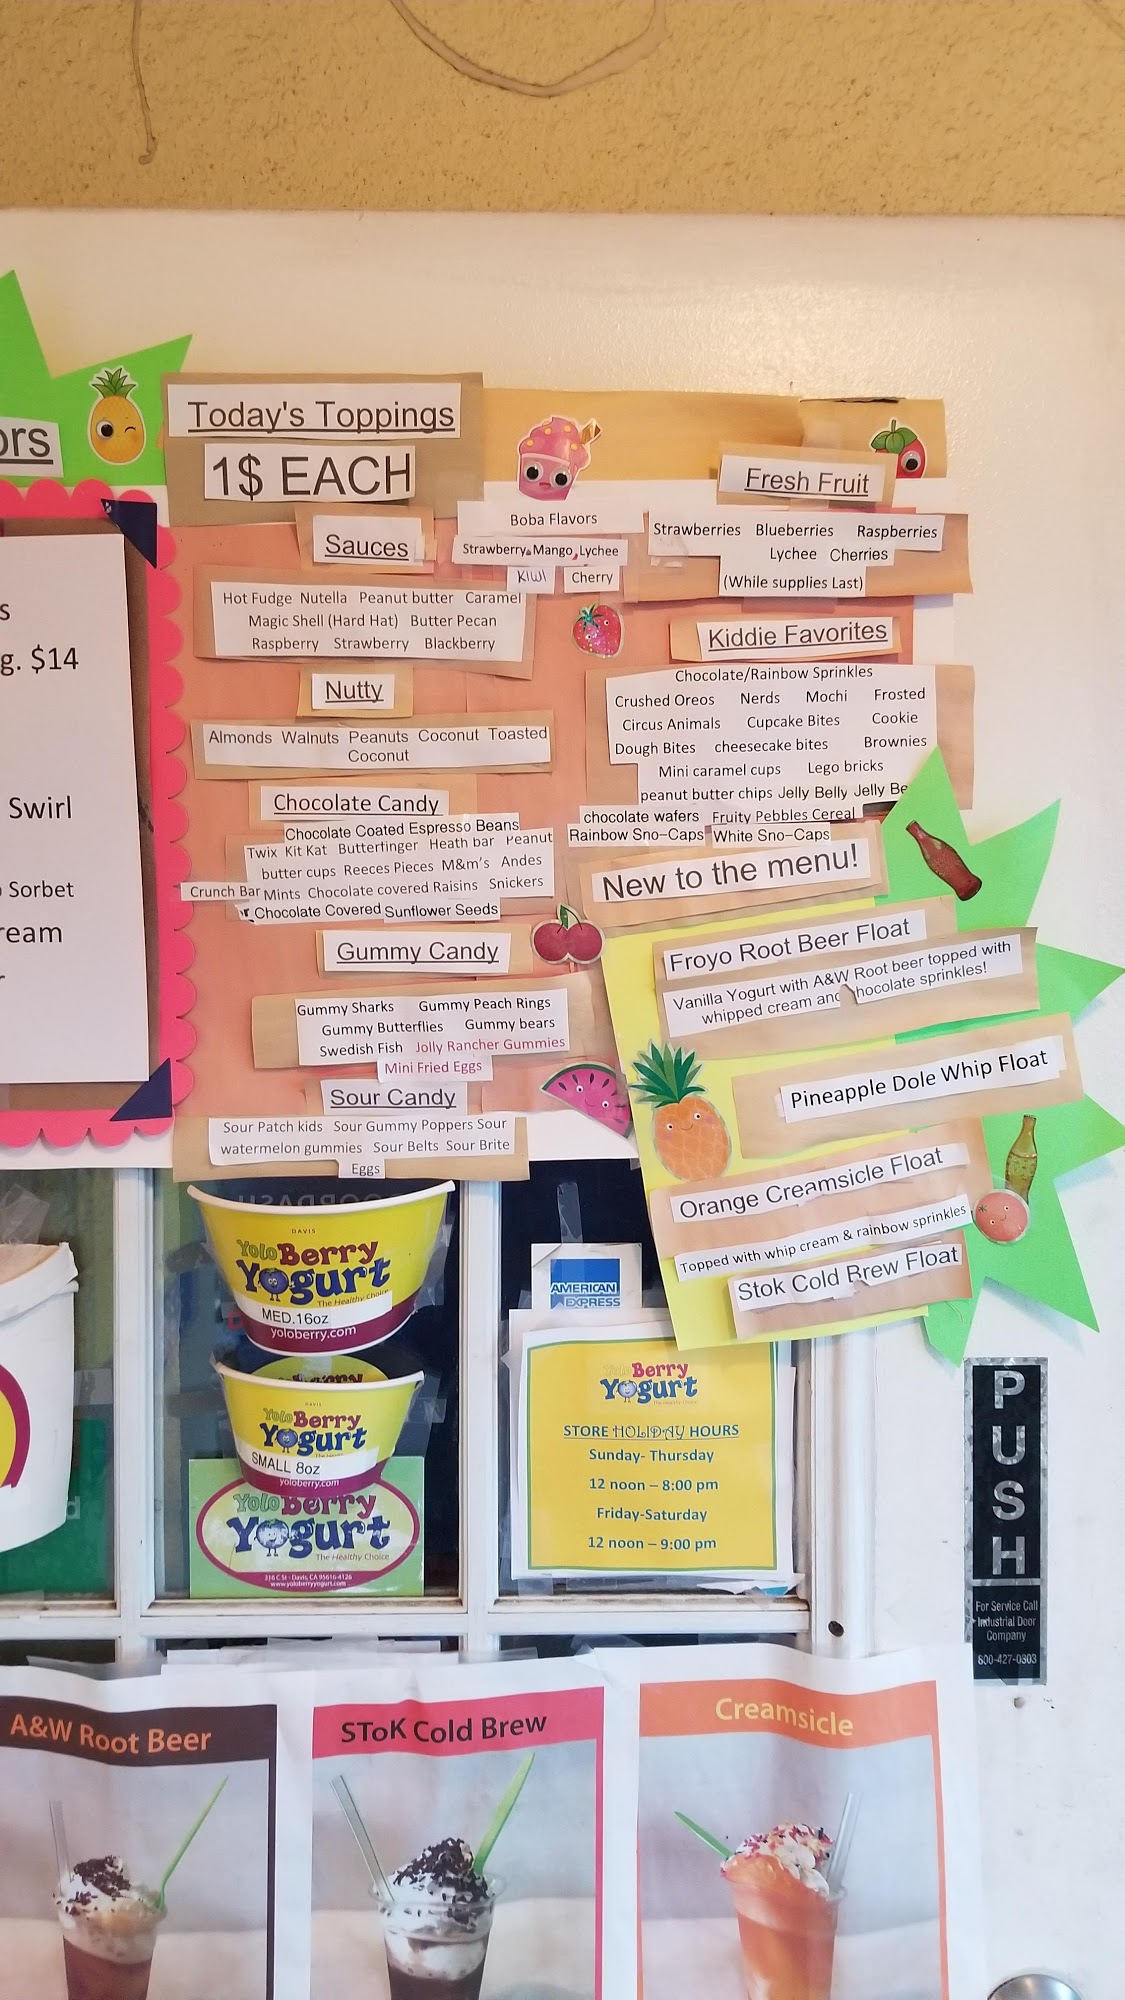 ors
s
g. $14
Swirl
Sorbet
ream
r
Today's Toppings
1$ EACH
Sauces
Hot Fudge Nutella Peanut butter Caramel
Magic Shell (Hard Hat) Butter Pecan
Raspberry Strawberry Blackberry
Nutty
Almonds Walnuts Peanuts Coconut Toasted
Coconut
Chocolate Candy
Chocolate Coated Espresso Beans
Twix Kit Kat Butterfinger Heath bar Peanut
butter cups Reeces Pieces M&m's Andes
Crunch Bar Mints Chocolate covered Raisins Snickers
Chocolate Covered Sunflower Seeds
Gummy Candy
Gummy Sharks Gummy Peach Rings
Gummy Butterflies Gummy bears
Swedish Fish Jolly Rancher Gummies
Mini Fried Eggs
Sour Candy
Sour Patch kids Sour Gummy Poppers Sour
watermelon gummies Sour Belts Sour Brite
Eggs
Boba Flavors
Strawberry, Mango, Lychee
Kiwi Cherry
Fresh Fruit
Strawberries Blueberries Raspberries
Lychee Cherries
(While supplies Last)
Kiddie Favorites
Chocolate/Rainbow Sprinkles
Crushed Oreos Nerds Mochi Frosted
Circus Animals Cupcake Bites Cookie
Dough Bites cheesecake bites Brownies
Mini caramel cups Lego bricks
peanut butter chips Jelly Belly Jelly Be
chocolate wafers Fruity Pebbles Cereal
Rainbow Sno-Caps White Sno-Caps
New to the menu!
Froyo Root Beer Float
Vanilla Yogurt with A&W Root beer topped with
whipped cream and hocolate sprinkles!
Pineapple Dole Whip Float
Orange Creamsicle Float
Topped with whip cream & rainbow sprinkles
Stok Cold Brew Float
DAVIS
Yolo Berry
Yogurt
The Healthy Choice
MED.16oz
yoloberry.com
DAVIS
Yolo Berry
Yogurt
SMALL 8oz
yoloberry.com
Yolo Berry
Yogurt
The Healthy Choice
316 C St - Davis, CA 95616-4126
www.yoloberryyogurt.com
AMERICAN
EXPRESS
Yolo Berry
Yogurt
STORE HOLIDAY HOURS
Sunday- Thursday
12 noon – 8:00 pm
Friday-Saturday
12 noon – 9:00 pm
PUSH
For Service Call
Industrial Door
Company
800-427-0303
A&W Root Beer
SToK Cold Brew
Creamsicle